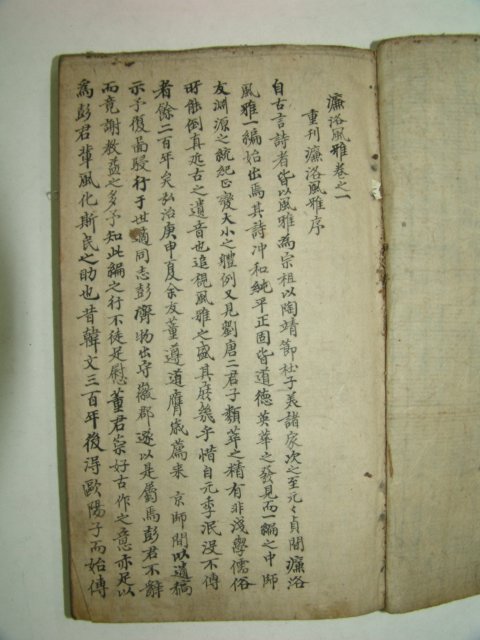 濂洛風雅卷之一
重刊濂洛風雅序
自古言詩者皆以風雅為宗祖以陶靖節杜子美諸家次之至元々貞間濂洛
風雅一編始出焉其詩冲和純平正固皆道德英華之發見而一編之中師
友淵源之統紀正變大小之體例又見劉唐二君子類萃之精有非淺學儒俗
所能倒真逃古之遺音也追視風雅之盛其庶幾乎惜自元季泯沒不傳
者餘二百年矣弘治庚申夏余友董遵道膺歲薦來京師間以遺稿
示予復畐駸行于世適同志彭濟物出守徽郡遂以是屬焉彭君不辭
而竟謝教益之多予知此編之行不徒足慰董君崇好古作之意亦足以
為彭君輩風化斯民之助也昔韓文三百年後得歐陽子而始傳